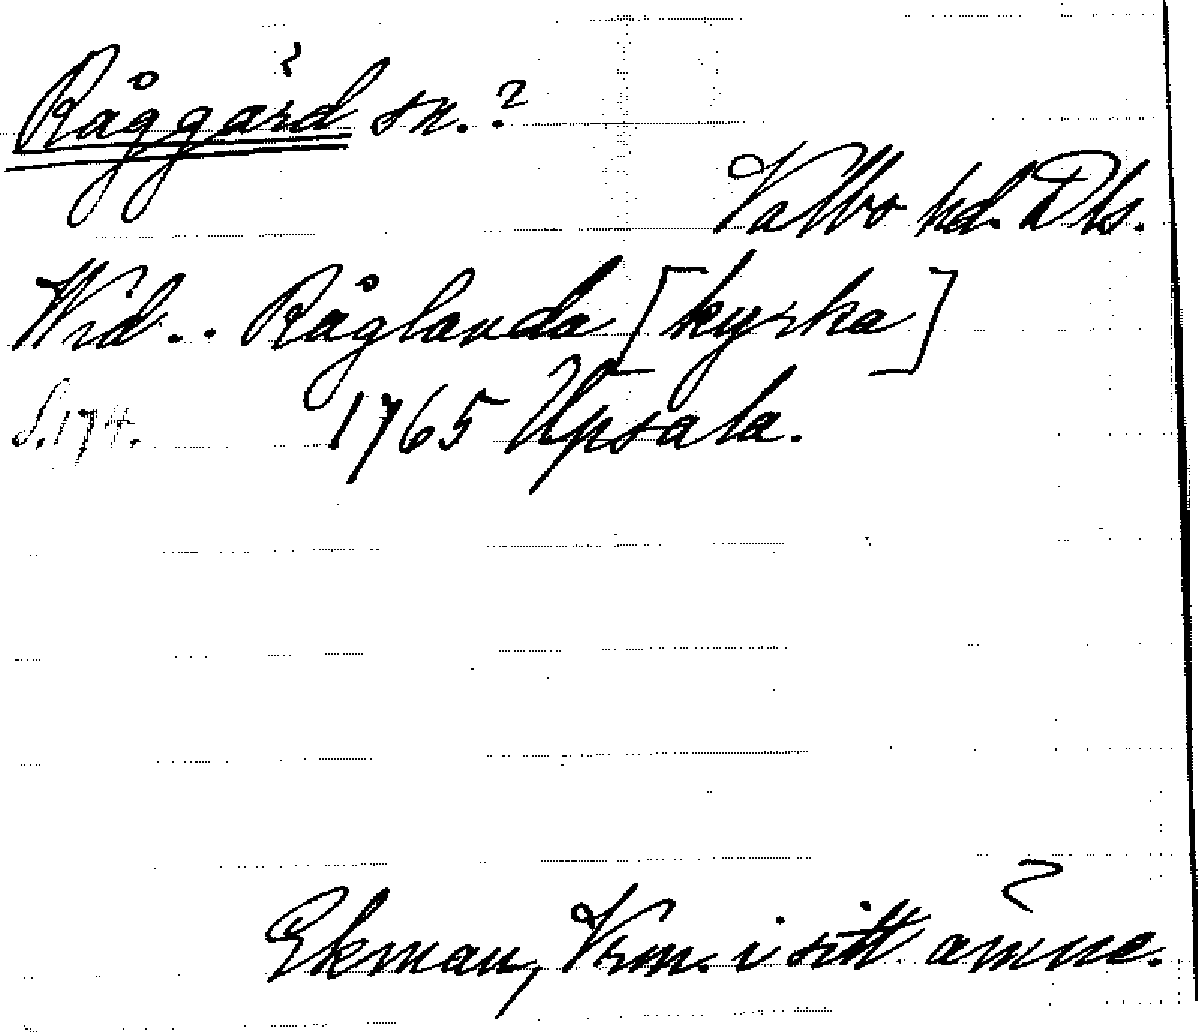 Råggärd sn.?
Valbo hd. Dls.
Wid .. Råglanda [kyrka]
S. 174. 1765 Upsala.
Ekman, Vrm. i sitt ämne.